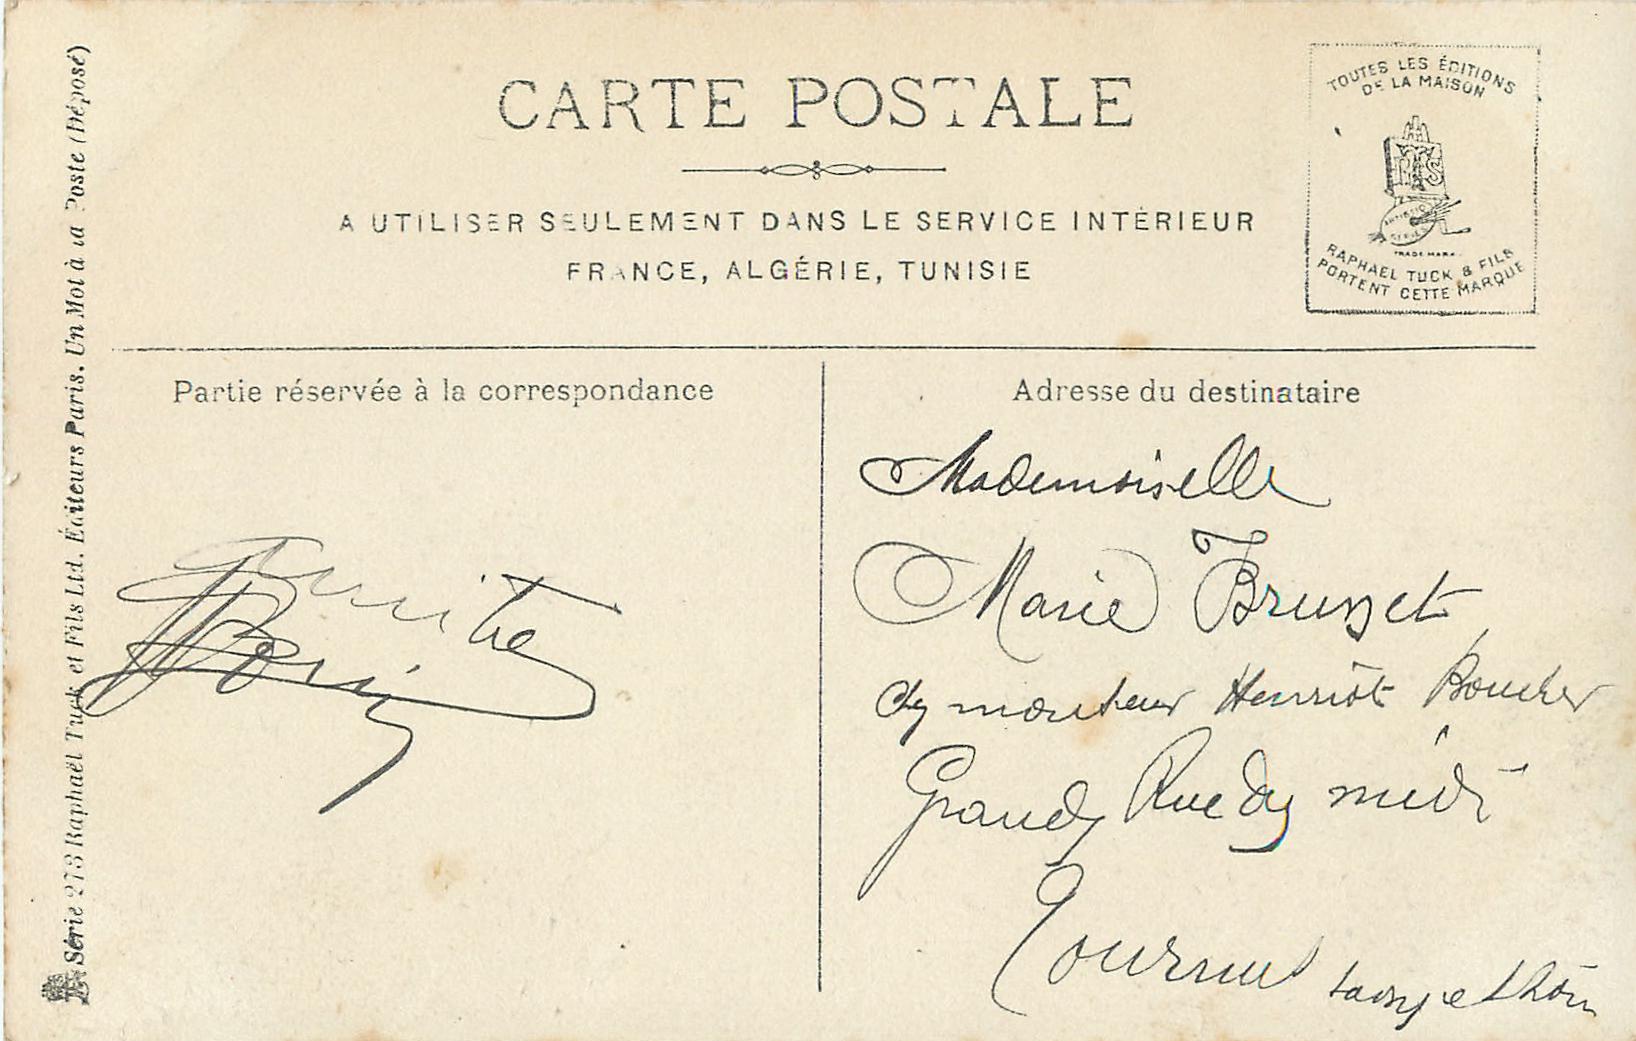 CARTE POSTALE
A UTILISER SEULEMENT DANS LE SERVICE INTÉRIEUR
FRANCE, ALGÉRIE, TUNISIE
TOUTES LES ÉDITIONS
DE LA MAISON
RTS
ARTISTIC
SERIES
TRADE MARK
RAPHAEL TUCK & FILS
PORTENT CETTE MARQUE
Série 273 Raphaël Tuck et Fils Ltd. Éditeurs Paris. Un Mot à la Poste (Déposé)
Partie réservée à la correspondance
Adresse du destinataire
Mademoiselle
Marie Brusset
monsieur Henriot Boucher
Grande Rue du midi
Tournus